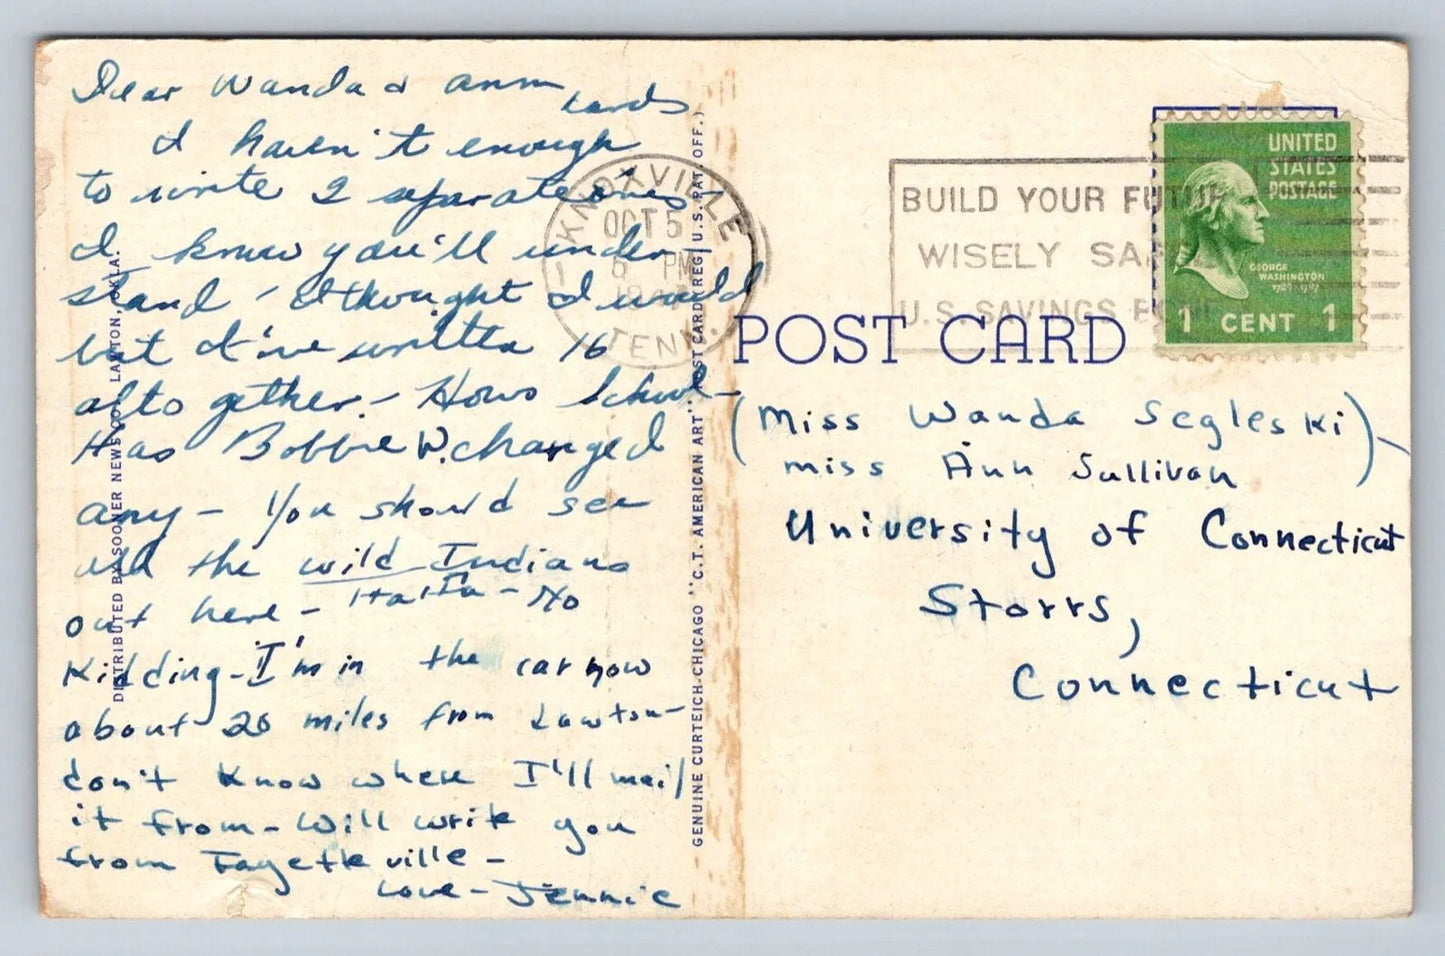 Dear Wanda & Ann
cards
I haven't enough
to write 2 separate ones
I know you'll under-
stand - I thought I would
but I've written 16
alto gether. - Hows School -
Has Bobbie W. changed
any - You should see
all the wild Indians
out here - Ha Ha - No
Kidding - I'm in the car now
about 20 miles from Lawton -
don't know where I'll mail
it from - Will write you
from Fayetteville -
Love - Jennie
DISTRIBUTED BY SOONER NEWS CO., LAWTON, OKLA.
GENUINE CURTEICH-CHICAGO "C.T. AMERICAN ART" POST CARD (REG. U.S. PAT. OFF.)
KNOXVILLE
OCT 5
6 PM
TENN.
BUILD YOUR FUTUR
WISELY SA
U.S. SAVINGS BOND
UNITED
STATES
POSTAGE
GEORGE
WASHINGTON
1789-1797
1 CENT 1
POST CARD
(Miss Wanda Segleski) -
Miss Ann Sullivan
University of Connecticut
Storrs,
Connecticut